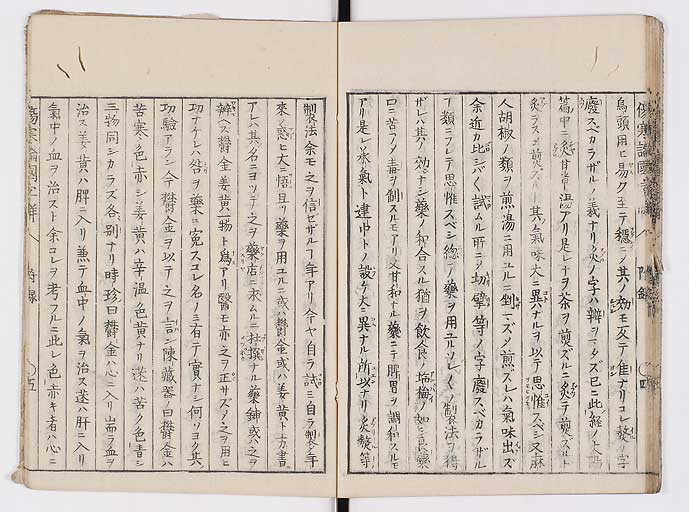 烏頭用ヒ易ク至テ穏ニ其ノ効モ又テ隹ナリコレ熬ノ字
廢スベカラザルノ義ナリ炙ノ字ハ辨ヲマタズ巳ニ此經ノ太陽
篇中ニ炙甘艸湯アリ是レナヲ茶ヲ煎ズルニ炙テ煎スルト
炙ラスメ煎ズル 其氣味大ニ異ナルヲ以テ思惟スベシ又麻
人胡椒ノ類ヲ煎湯ニ用ユルニ剉マズメ煎スレハ氣味出ズ
余近カ比シバシバ試ムル所ニメ切擘等ノ字廢スベカラザル
丁類ニフレテ思惟スベシ總テ藥ヲ用ユルソレソレノ製法ヲ得
ザレハ其ノ効ナシ藥ノ和合スル猶ヲ飲食ノ塩梅ノ如シ良藥
口ニ苦フメ毒ヲ制スルモアリ又甘和ナル藥ニテ脾胃ヲ調和スルモ
アリ是レ承氣ト建中トノ設ケ大ニ異ナル所以ナリ炙熬等
製法余モ之ヲ信セザルコ年アリ今ヤ自ラ試ミ自ラ製メ年
來ノ惑ヒ大ニ悟ル藥ヲ用ユルニ或ハ鬱金或ハ姜黄ト方書ニ
アレハ其名ニヨツテ之ヲ藥店ニ求ムルニ杜撰ナル藥鋪或ハ之ヲ
辨ズ鬱金姜黄一物ト爲アリ醫モ亦之ヲ正サズメ之ヲ用ヒ
功ナケレハ咎ヲ藥ニ寃スコレ名ノミ有テ實ナシ何ソヨク其
功驗アラン今鬱金ヲ以テ之ヲ言ン陳藏器曰鬱金ハ
苦寒色赤シ姜黄ハ辛温色黄ナリ迷ハ苦ク色青シ
三物同シカラズ各別ナリ時珍曰鬱金ハ心ニ入リ専ラ血ヲ
治ス姜黄ハ脾ニ入リ兼テ血中ノ氣ヲ治ス迷ハ肝ニ入リ
氣中ノ血ヲ治スト余コレヲ考フルニ此レ色赤キ者ハ心ニ